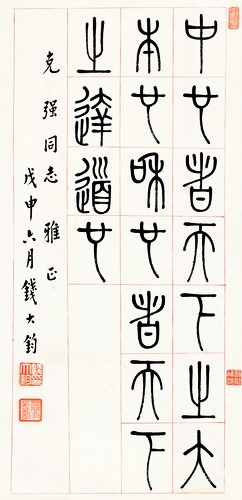 中也者天下之大
本也和也者天下
之達道也
克強同志雅正
戊申六月錢大鈞